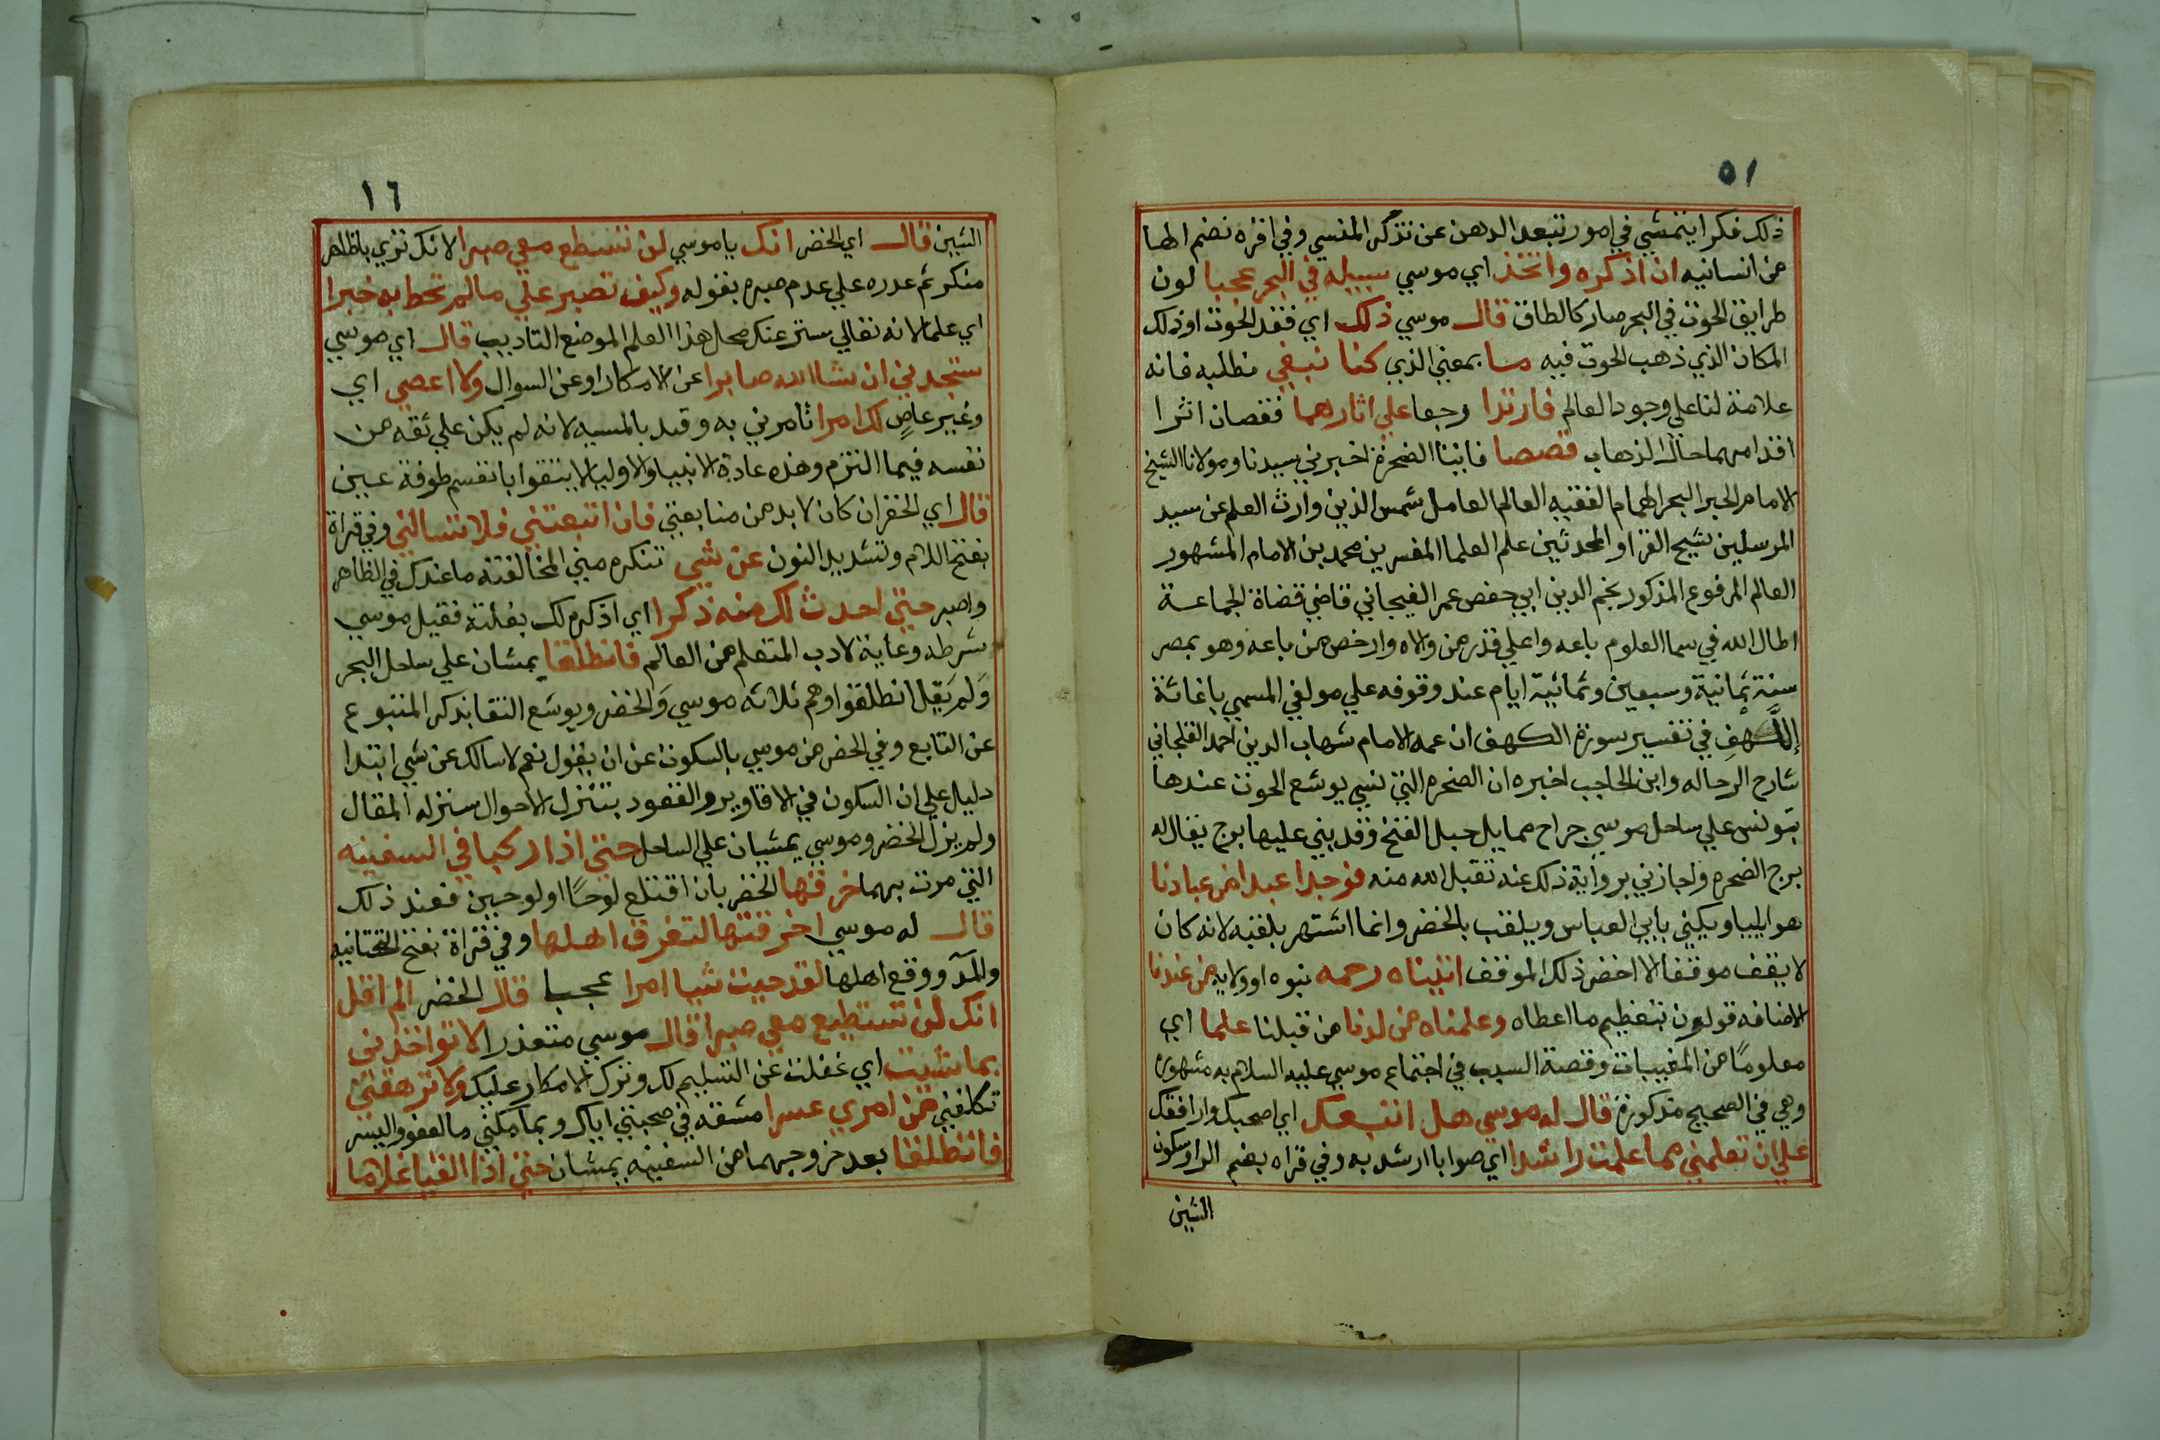 ٥١
ذلك فكرا يتمشي في امور تبعد الدهن عن تذكر المنسي وفي اقره نضم الها
من انسانيه ان اذكره واتخذ اي موسي سبيله في البحر عجبا لون
طرايق الحوت في البحر صار كالطاق قال موسي ذلك اي فقد الحوت او ذلك
المكان الذي ذهب الحوت فيه ما بمعني الذي كنا نبغي نطلبه فانه
علامة لنا علي وجود العالم فارتدا رجعا علي اثارهما فقصان اثرا
اقدامهما حال الذهاب قصصا فاتينا الصخرة اخبرني سيدنا ومولانا الشيخ
الامام الحبر البحر الهمام الفقيه العالم العامل شمس الدين وارث العلم عن سيد
المرسلين شيخ القرا والمحدثين علم العلما المفسرين محمد بن الامام المشهور
العالم المرفوع المذكور نجم الدين ابي حفص عمر الفيجاني قاضي قضاة الجماعة
اطال الله في سما العلوم باعه واعلي قدر من والاه وارخص من باعه وهو بمصر
سنة ثمانية وسبعين وثمانية ايام عند وقوفه علي مولفي المسمي باغاثة
اللهف في تفسير سورة الكهف ان عمه الامام شهاب الدين احمد القلجاني
شارح الرساله وابن الحاجب اخبره ان الصخره التي نسي يوشع الحوت عندها
بتونس علي ساحل موسي جراح مما يلي جبل الفتح وقد بني عليها برج يقال له
برج الصخره واجازني برواية ذلك عنه تقبل الله منه فوجدا عبدا من عبادنا
هو ايليا ويكني بابي العباس ويلقب بالخضر وانما اشتهر بلقبه لانه كان
لا يقف موقفا الا اخضر ذلك الموقف اتيناه رحمه نبوه او ولايه من عندنا
الاضافه قولون تعظيم ما اعطاه وعلمناه من لدنا من قبلنا علما اي
معلومًا من المغيبات وقصة السبب في اجتماع موسي عليه السلام به مشهورة
وهي في الصحيح مذكورة قال له موسي هل اتبعك اي اصحبك وارافقك
علي ان تعلمني مما علمت راشدا اي صوابا ارشد به وفي قراه بضم الرا وسكون
الشين
١٦
الشين قال اي الخضر انك يا موسي لن تستطع معي صبرا لانك تري باظاهر
منكر ثم عدره علي عدم صبره بقوله وكيف تصبر علي مالم تحط به خبرا
اي علما لانه تعالي ستر عنك محل هذا العلم الموضع التاديب قال اي موسي
ستجدني ان شا الله صابرا عن الانكار او عن السوال ولا اعصي اي
وغير عاصٍ لك امرا تامرني به وقيد بالمسيه لانه لم يكن علي ثقه من
نفسه فيما التزم وهذه عادة الانبيا والاوليا لا يتقوا بانفسهم طوفة عين
قال اي الخضر ان كان لابد من متابعتي فان اتبعتني فلا تسالني وفي قراة
بفتح اللام وتشديد النون عن شي تنكره مني المخالفته ما عندك في الظاهر
واصبر حتي احدث لك منه ذكرا اي اذكره لك بفلتة فقبل موسي
شرطه وعاية لادب المتعلم من العالم فانطلقا يمشان علي ساحل البحر
وَلم يَقل انطلقوا وهم ثلاثه موسي وَالخضر ويوشع التقا بذكر المتبوع
عن التابع وفي الخضر من موسي بالسكوت عن ان يقول نعم لا سالك عن شي ابتدا
دليل علي ان السكون في الاقاوير والعقود بتنزل الاحوال منزله المقال
ولم يزل الخضر وموسي يمشيان علي الساحل حتي اذا ركبا في السفينه
التي مرت بهما خرقها الخضر بان اقتلع لوحًا او لوحين فعند ذلك
قال له موسي اخرقتها لتغرق اهلها وفي قراة بفتح التحتانيه
والمرآ ووقع اهلها لقد جيت شيا امرا عجبا قال الخضر الم اقل
انك لن تستطيع معي صبرا قال موسي متعذرا لا تواخذني
بما نسيت اي غفلت عن التسليم لك وترك الانكار عليك ولا ترهقني
تكلفني من امري عسرا مشقه في صحبتي اياك وبما مكنني ما العفو واليسر
فانطلقا بعد خروجهما من السفينه يمشان حتي اذا القيا غلاما